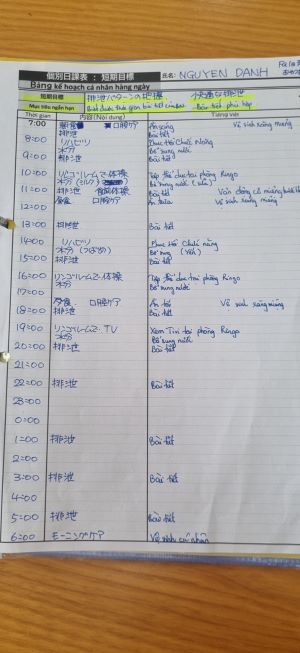 個別日課表：短期目標
氏名: NGUYEN DANH
Bảng kế hoạch cá nhân hàng ngày
短期目標 排泄パターンの把握、 快適な排泄
Mục tiêu ngắn hạn Bài tiết phù hợp
Thời gian 内容(Nội dung) Tiếng việt
7:00 口腔ケア Ăn sáng Vệ sinh răng miệng
排泄 Bài tiết
8:00 リハビリ Phục hồi chức năng
水分 Bổ sung nước
9:00 排泄 Bài tiết
10:00 体操 Tập thể dục tại phòng Ringo
水分 Bổ sung nước
11:00 排泄 Bài tiết
12:00 昼食 口腔ケア Ăn trưa Vệ sinh răng miệng
13:00 排泄 Bài tiết
14:00 リハビリ Phục hồi chức năng
水分 Bổ sung
15:00 排泄 Bài tiết
16:00 リンゴルームで体操 Tập thể dục tại phòng Ringo
水分 Bổ sung nước
17:00
夕食 口腔ケア Ăn tối Vệ sinh răng miệng
18:00 排泄 Bài tiết
19:00 リンゴルームで TV Xem Tivi tại phòng Ringo
水分 Bổ sung nước
20:00 排泄 Bài tiết
21:00
22:00 排泄 Bài tiết
23:00
0:00
1:00 排泄 Bài tiết
2:00
3:00 排泄 Bài tiết
4:00
5:00 排泄 Bài tiết
6:00 モーニングケア Vệ sinh cá nhân